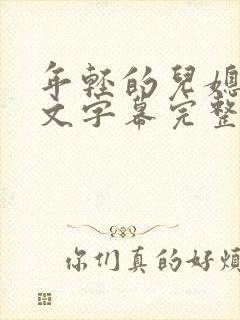 年轻的兒媳
文字幕完整
你们真的好煩